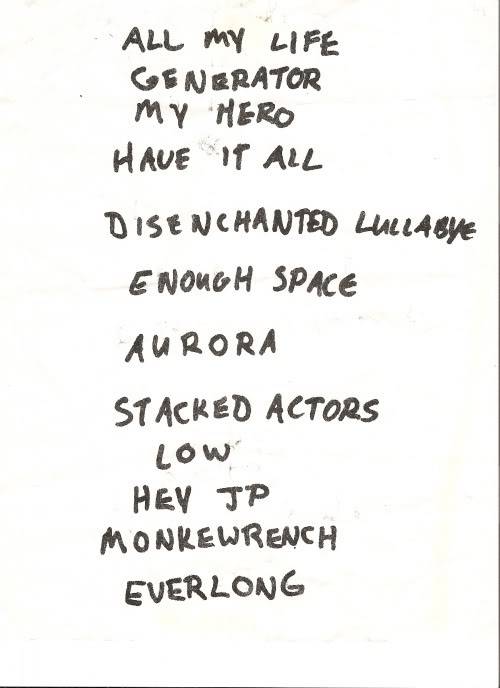 ALL MY LIFE
GENERATOR
MY HERO
HAVE IT ALL
DISENCHANTED LULLABYE
ENOUGH SPACE
AURORA
STACKED ACTORS
LOW
HEY JP
MONKEWRENCH
EVERLONG